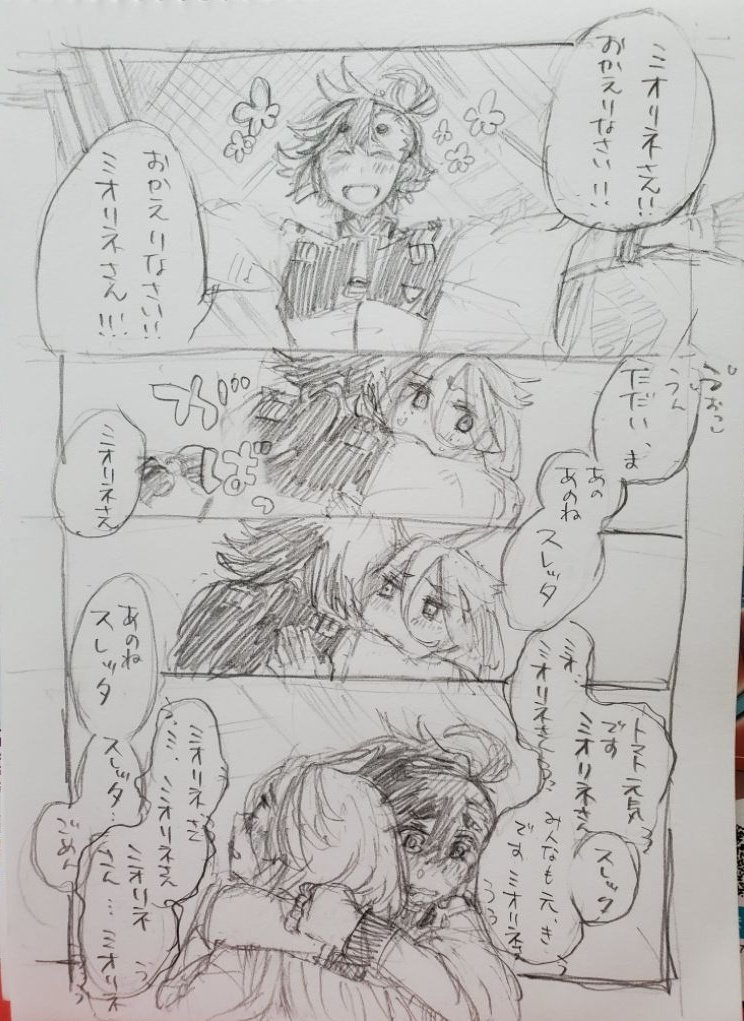 ミオリネさん!!
おかえりなさい!!
おかえりなさい!!
ミオリネさん!!!
うん
ただい、ま
ミオリネさん
あの
あのね
スレッタ
あのね
スレッタ
トマト元気
です
ミオリネさん
ミオ…
ミオリネさん
スレッタ
みんなも元、き
です ミオリネさ
うう
ミオリネ、さん
ミ、ミオリネさん
スレッタ…
ごめん
ミオリネ
さん…ミオリネ